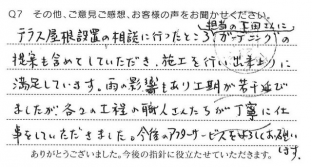 Q7 その他、ご意見ご感想、お客様の声をお聞かせください。
担当の下田さんに
テラス屋根設置の相談に行ったところ ガーデニングの
提案も含めてしていただき、施工を行い出来上りに
満足しています。雨の影響もあり工期が若干延び
ましたが各々の工程の職人さんたちが丁寧に仕
事をしていただきました。今後のアフターサービスをよろしくお願い
します。
ありがとうございました。今後の指針に役立たせていただきます。